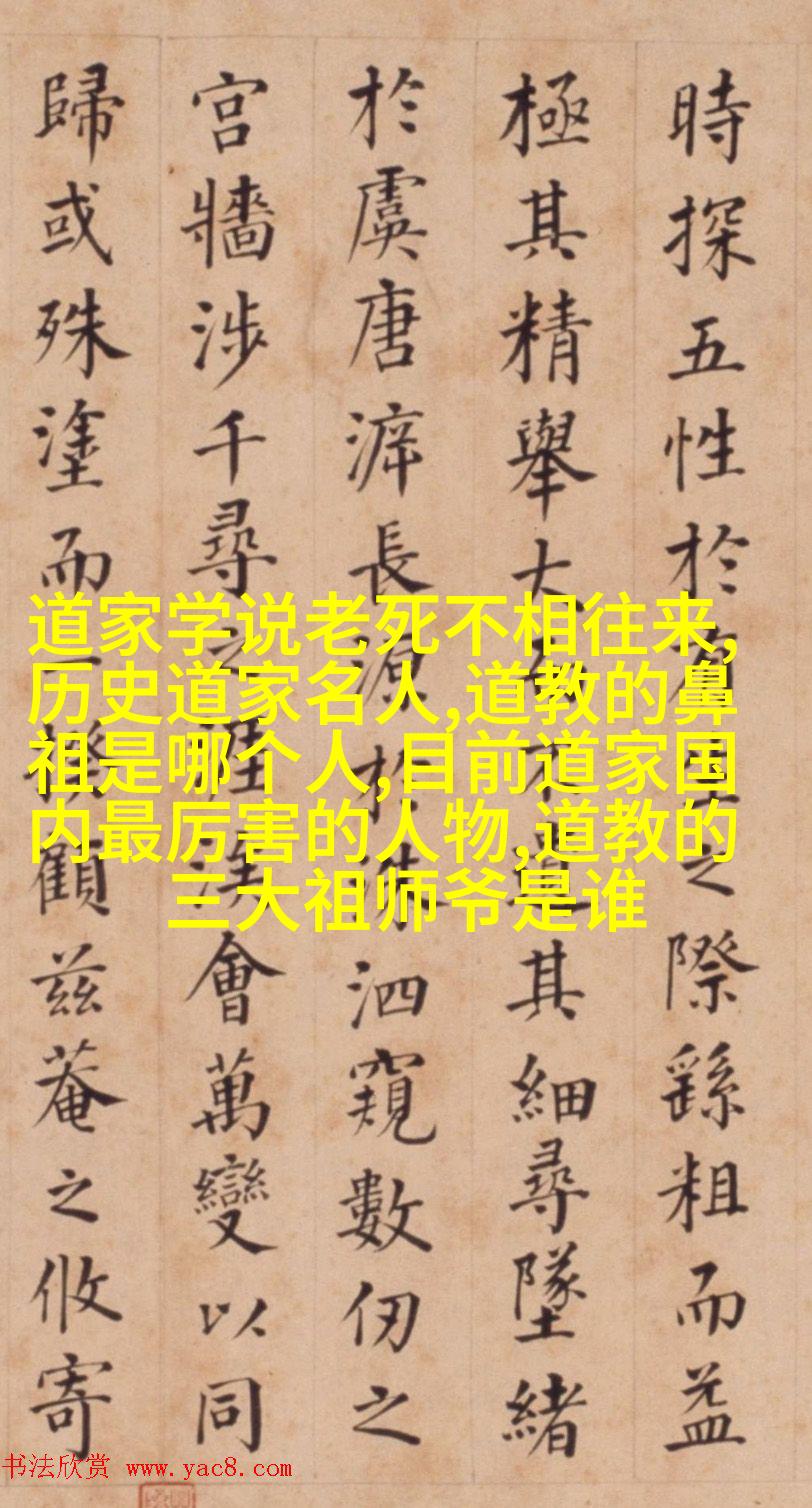 時探五性於之際繇粗而益
極其精舉大其細尋墜緒
於虞唐長源於洙泗窺數仞之
宮牆涉千尋之會萬變以同
歸或殊塗而一顧兹菴之攸寄
道家学说老死不相往来,
历史道家名人,道教的鼻
祖是哪个人,目前道家国
内最厉害的人物,道教的
三大祖师爷是谁
书法欣赏 www.yac8.com